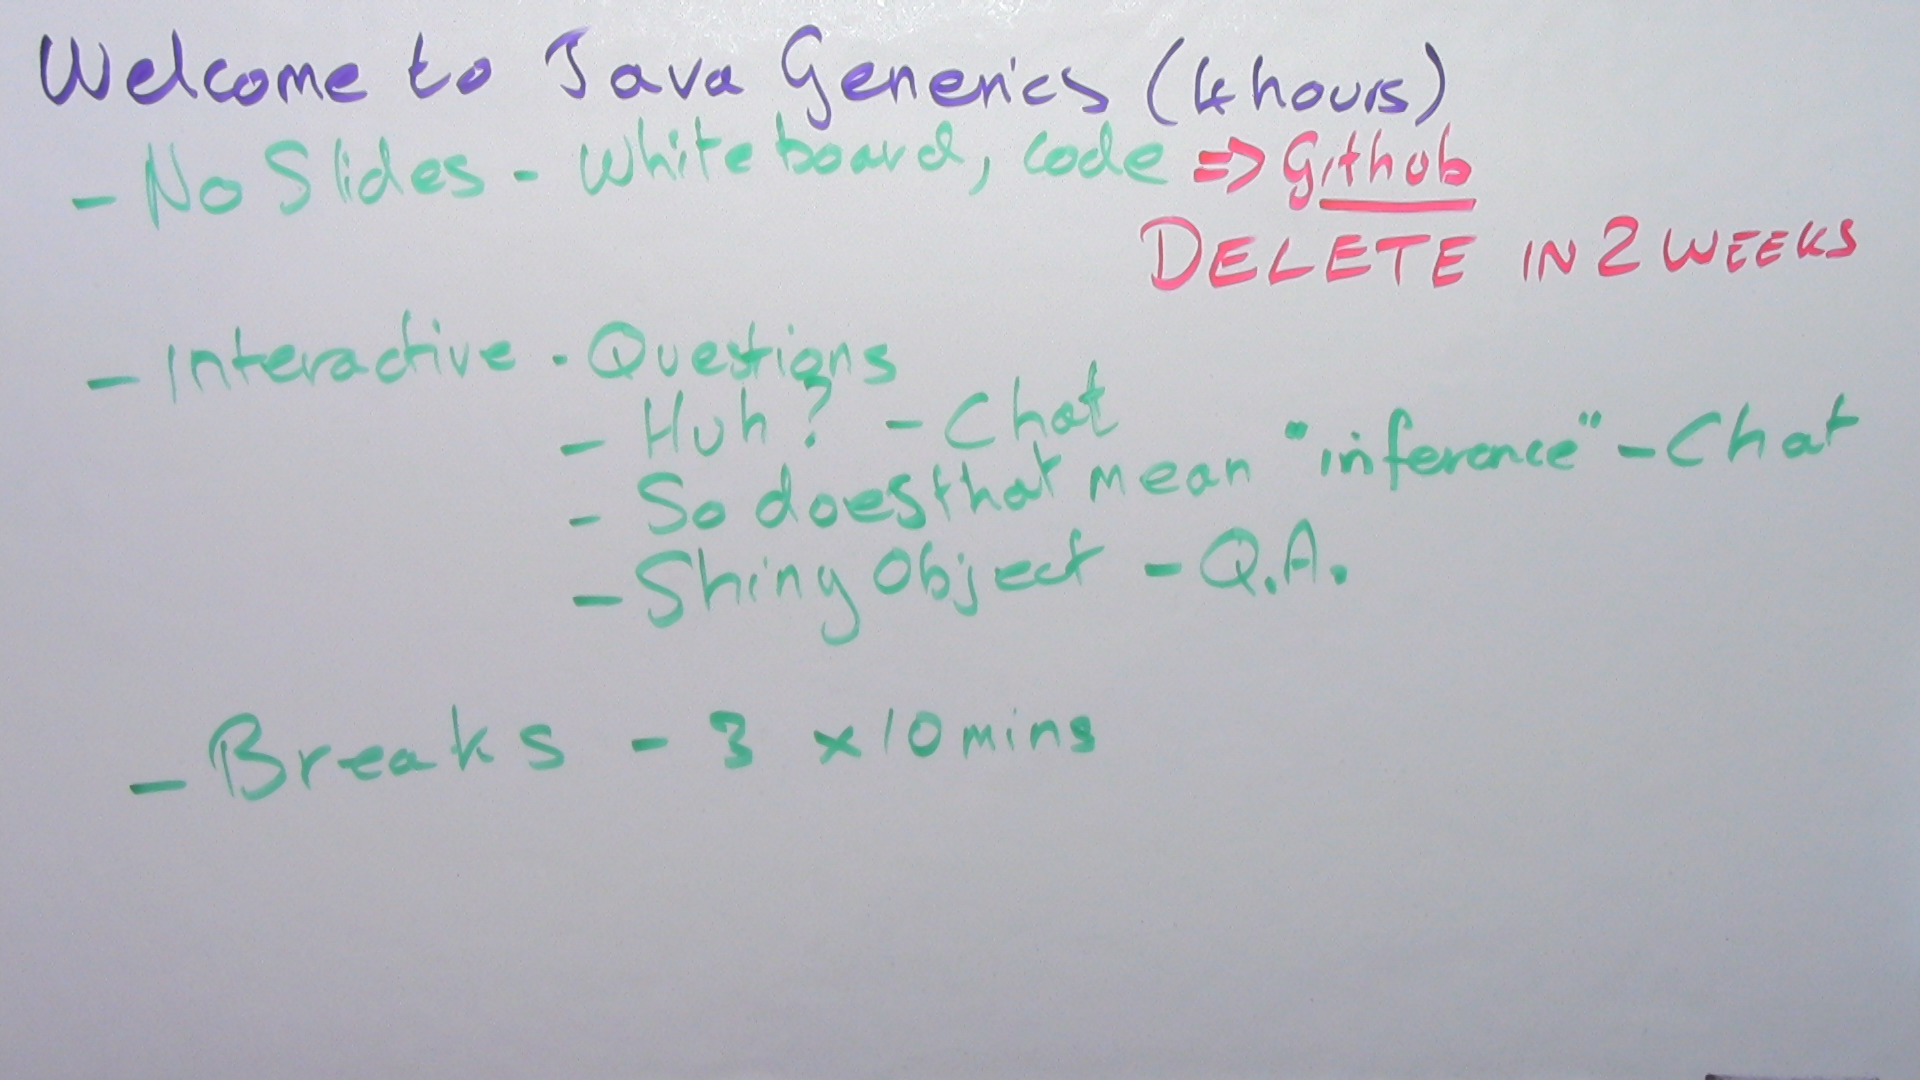 Welcome to Java Generics (4 hours)
- No Slides - Whiteboard, code => Github
DELETE IN 2 WEEKS
- Interactive - Questions
- Huh? - Chat
- So does that mean "inference" - Chat
- Shiny Object - Q.A.
- Breaks - 3 x 10 mins